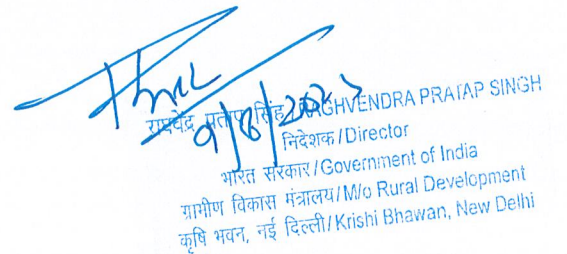 राघवेंद्र प्रताप सिंह/RAGHVENDRA PRATAP SINGH
निदेशक/Director
भारत सरकार/Government of India
ग्रामीण विकास मंत्रालय/M/o Rural Development
कृषि भवन, नई दिल्ली/Krishi Bhawan, New Delhi